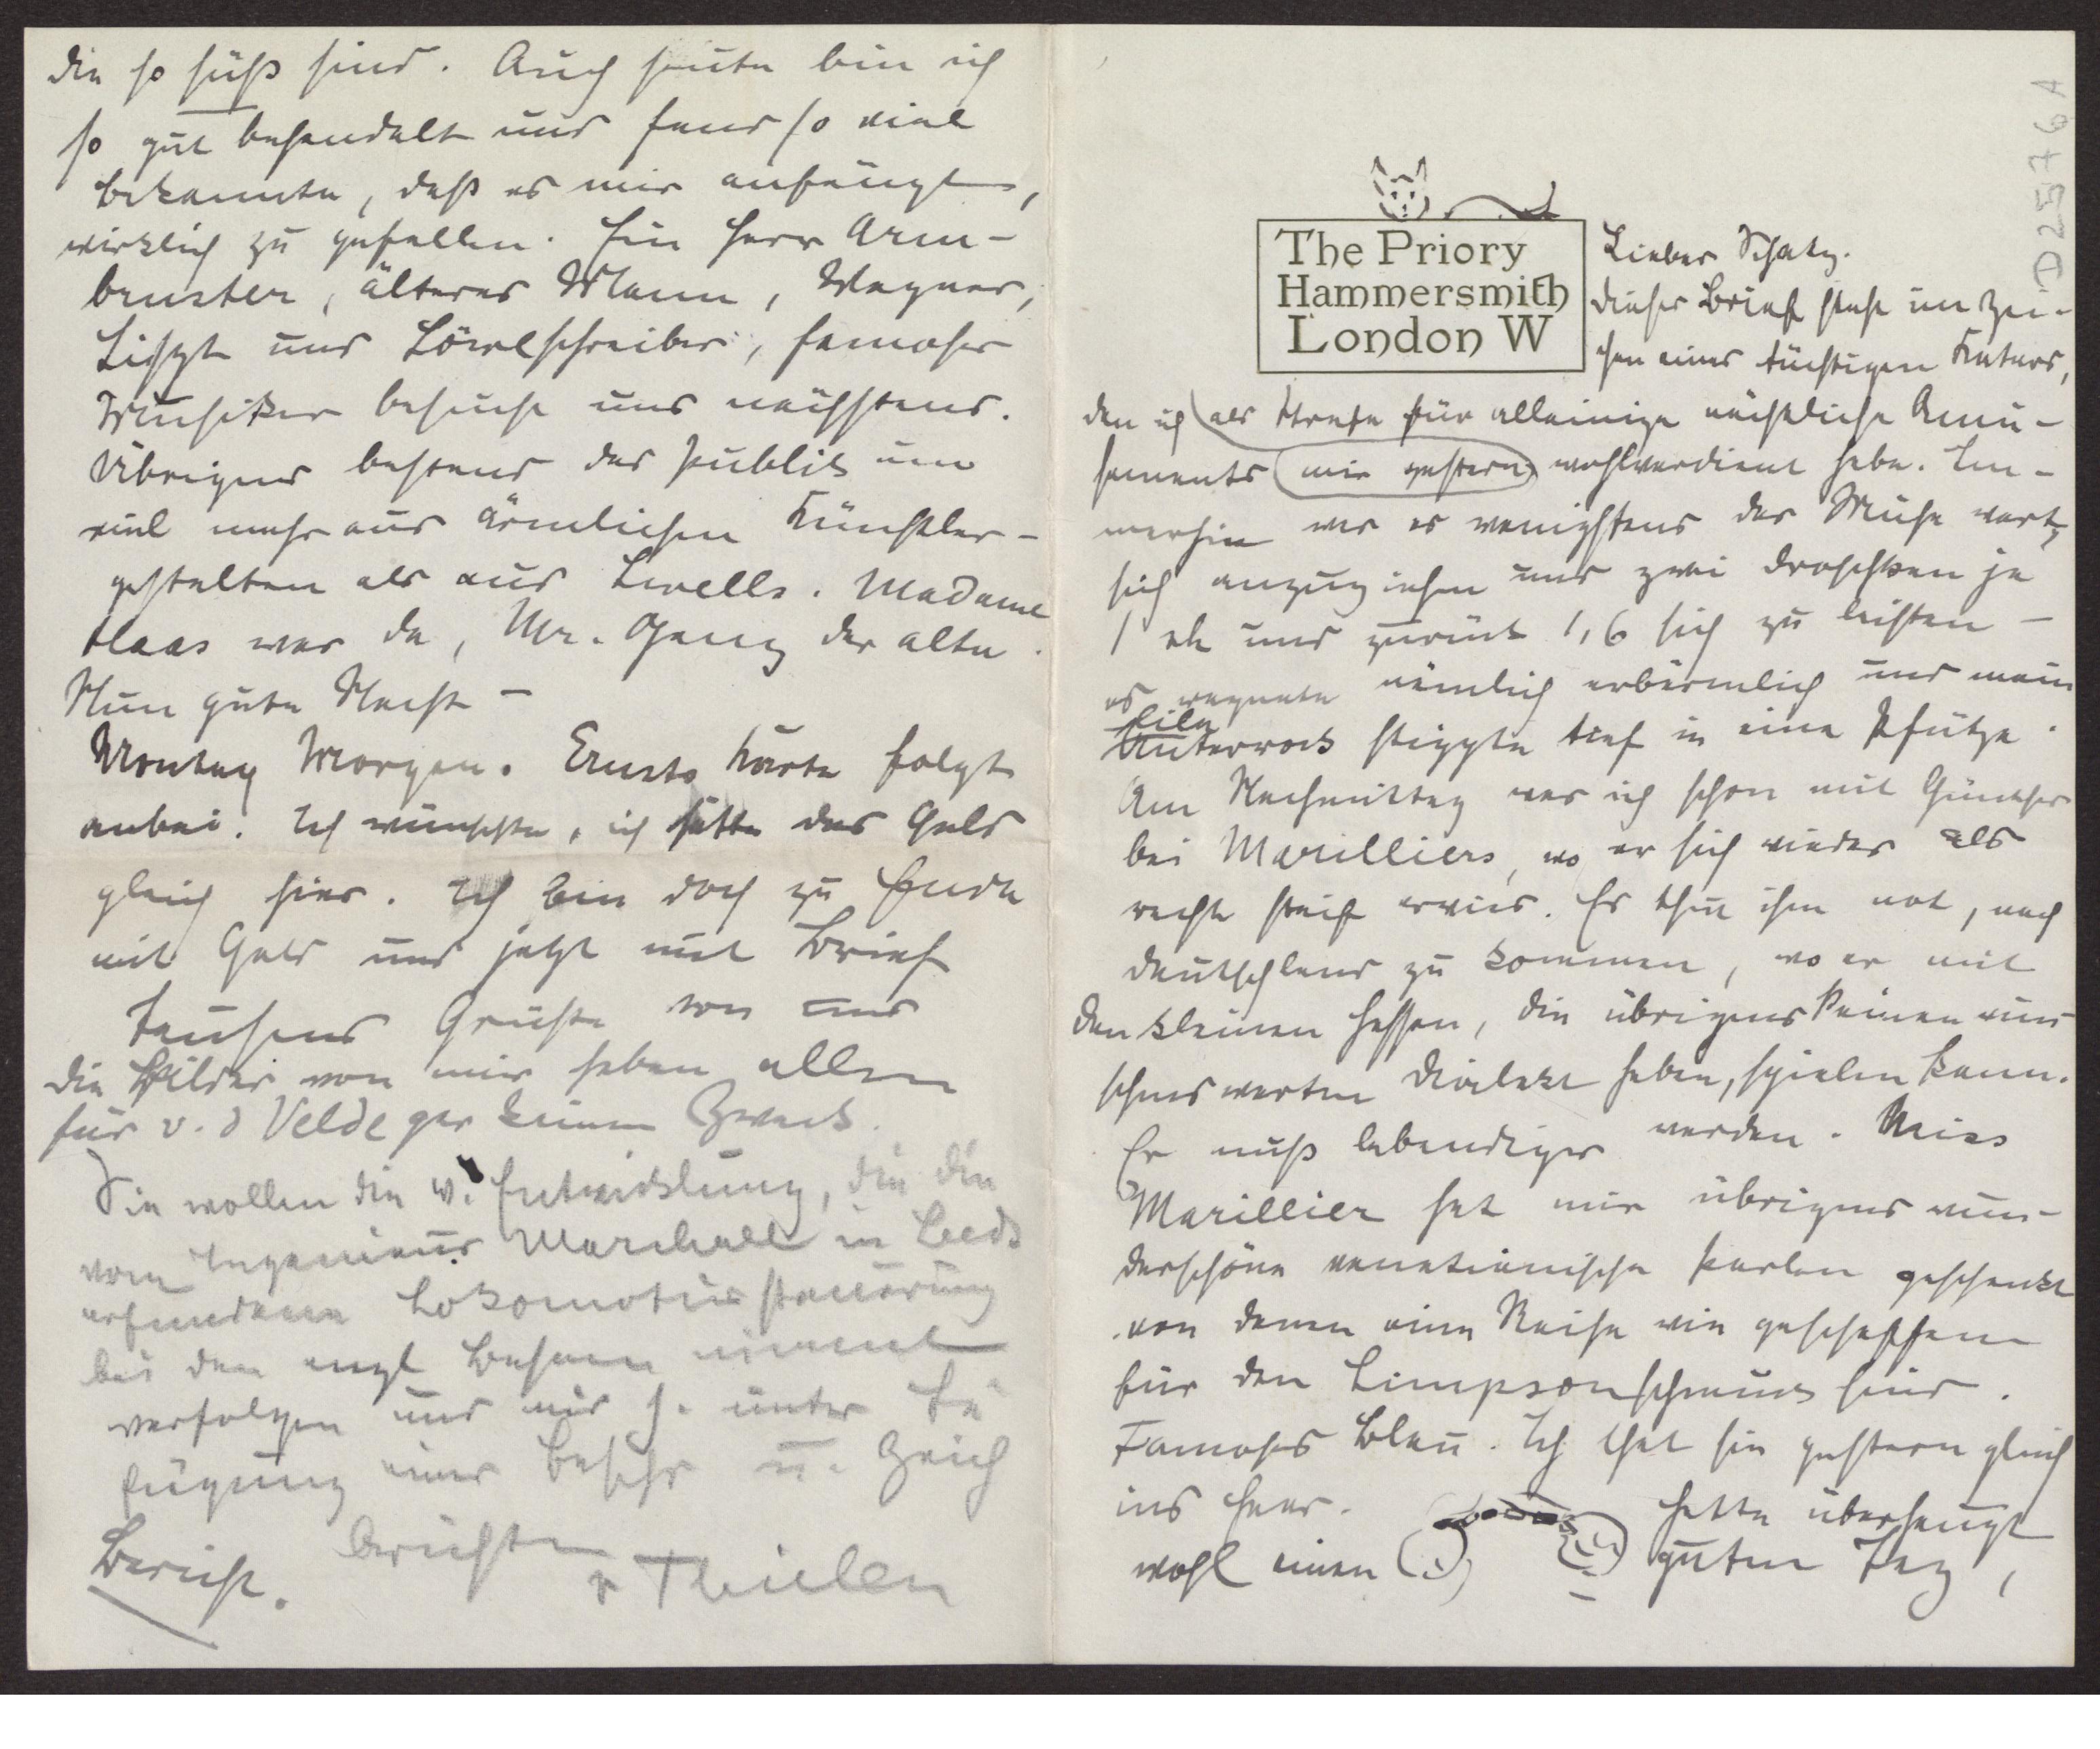 The Priory
Hammersmith
London W
Lieber Schatz.
dieser Brief steht im Zei-
chen eines tüchtigen Katers,
den ich als Strafe für alleinige nächtliche Amü-
sements mir gestern wohlverdient habe. Im-
merhin war es wenigstens der Mühe wert,
sich anzuziehen und zwei Droschken je
1 sh und zurück 1,6 sich zu leisten –
es regnete nämlich erbärmlich und mein
lila
Unterrock stippte tief in eine Pfütze.
Am Nachmittag war ich schon mit Günther
bei Marilliers, wo er sich wieder als
recht steif erwies. Es thut ihm not, nach
Deutschland zu kommen, wo er mit
den kleinen Hessen, die übrigens keinen wün-
schenswerten Dialekt haben, spielen kann.
Er muß lebendiger werden. Miss
Marillier hat mir übrigens wun-
derschöne venetianische Perlen geschenkt
von denen eine Reihe wie geschaffen
für den Simpsonschmuck sind.
Famoses Blau. Ich that sie gestern gleich
ins Haar. hatte überhaupt
wohl einen guten Tag,
die so süß sind. Auch heute bin ich
so gut behandelt und fand so viel
Bekannte, daß es mir anfängt,
wirklich zu gefallen. Ein Herr Arm-
bruster, älterer Mann, Wagner,
Liszt und schreiber, famoser
Musiker besucht uns nächstens.
Übrigens bestand das Publik um
viel mehr aus ärmlichen Künstler-
gestalten als aus Swells. Madame
Haas war da, Mr. der alte.
Nun gute Nacht –
Montag Morgen. Ernsts Karte folgt
anbei. Ich wünschte, ich hätte das Geld
gleich hier. Ich bin doch zu Ende
mit Geld und jetzt mit Brief
Tausend Grüße von uns
die Bilder von mir haben allen
für v. d Velde gar keinen Zweck.
Sie wollen die w. Entwicklung, die die
vom Ingenieur Marshall in Leeds
erfundene Lokomotivsteuerung
bei den engl Bahnen nimmt
verfolgen und mir s. unter Bei
fügung einer Beschr u. Zeich
berichten
Bericht.
v Thielen
D25761